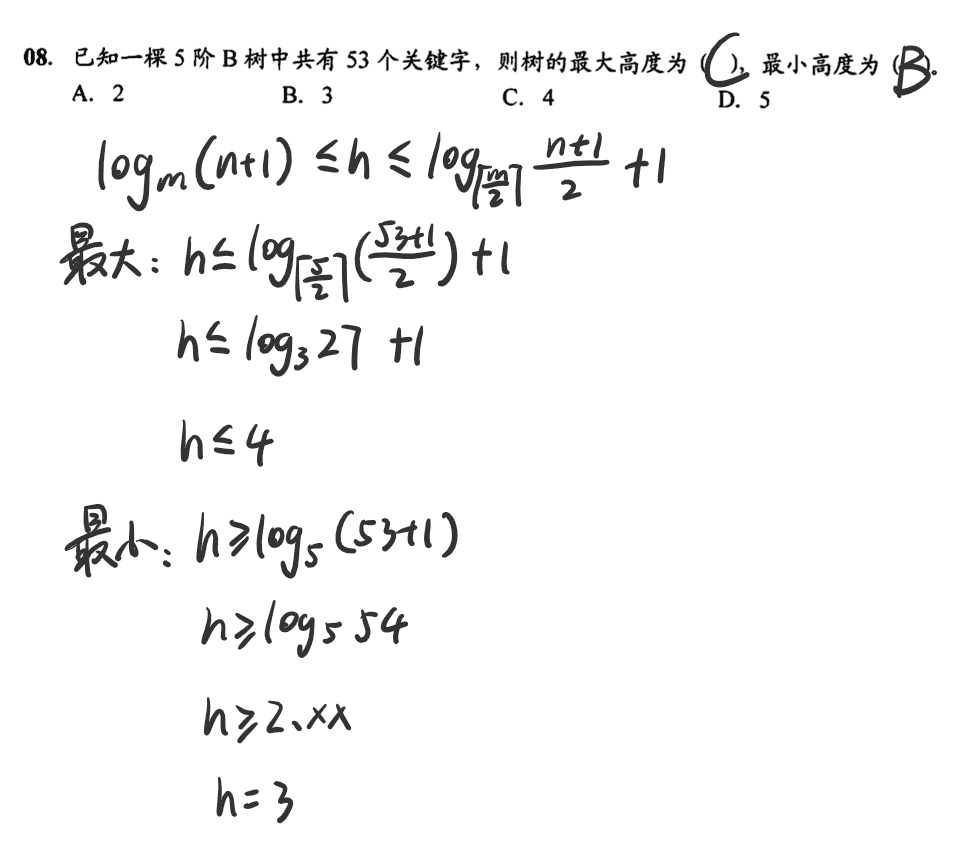 08. 已知一棵 5 阶 B 树中共有 53 个关键字，则树的最大高度为（C），最小高度为（B）.
A. 2 B. 3 C. 4 D. 5
logₘ(n+1) ≤ h ≤ log⌈m/2⌉ (n+1)/2 + 1
最大：h ≤ log⌈5/2⌉ ((53+1)/2) + 1
h ≤ log₃27 + 1
h ≤ 4
最小：h ≥ log₅(53+1)
h ≥ log₅54
h ≥ 2.xx
h = 3